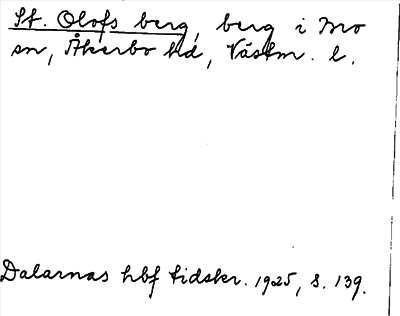 St. Olofs berg, berg i Mo
sn, Åkerbo hd, Västm. l.
Dalarnas hbf tidskr. 1925, s. 139.